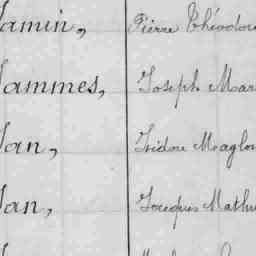 Jamin, Pierre Théodore
Jammes, Joseph Mar
Jan, Isidore Maglo
Jan, Jacques Mathu